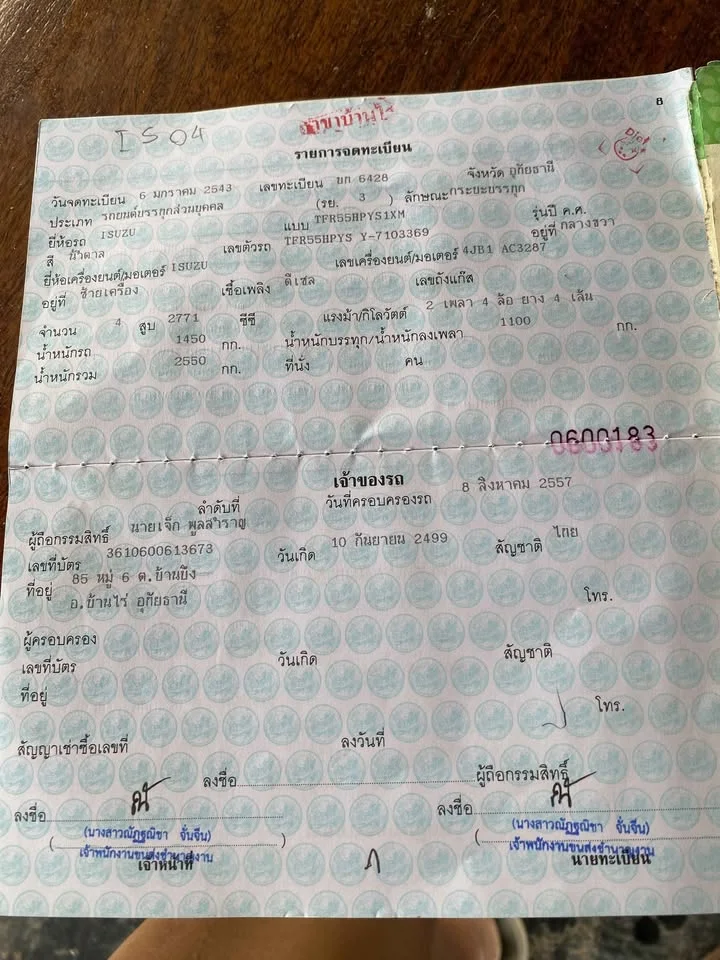 8
ISO4
สาขาบ้านไร่
รายการจดทะเบียน
วันจดทะเบียน 6 มกราคม 2543 เลขทะเบียน บก 6428 จังหวัด อุทัยธานี
ประเภท รถยนต์บรรทุกส่วนบุคคล (รย. 3 ) ลักษณะกระบะบรรทุก
ยี่ห้อรถ ISUZU แบบ TFR55HPYS1XM รุ่นปี ค.ศ.
สี น้ำตาล เลขตัวรถ TFR55HPYS Y-7103369 อยู่ที่ กลางขวา
ยี่ห้อเครื่องยนต์/มอเตอร์ ISUZU เลขเครื่องยนต์/มอเตอร์ 4JB1 AC3287
อยู่ที่ ซ้ายเครื่อง เชื้อเพลิง ดีเซล เลขถังแก๊ส
จำนวน 4 สูบ 2771 ซีซี แรงม้า/กิโลวัตต์ 2 เพลา 4 ล้อ ยาง 4 เส้น
น้ำหนักรถ 1450 กก. น้ำหนักบรรทุก/น้ำหนักลงเพลา 1100 กก.
น้ำหนักรวม 2550 กก. ที่นั่ง คน
0600183
เจ้าของรถ
ลำดับที่ วันที่ครอบครองรถ 8 สิงหาคม 2557
ผู้ถือกรรมสิทธิ์ นายเจ็ก พูลสำราญ
เลขที่บัตร 3610600613673 วันเกิด 10 กันยายน 2499 สัญชาติ ไทย
ที่อยู่ 85 หมู่ 6 ต.บ้านบึง
อ.บ้านไร่ อุทัยธานี โทร.
ผู้ครอบครอง
เลขที่บัตร วันเกิด สัญชาติ
ที่อยู่ โทร.
สัญญาเช่าซื้อเลขที่ ลงวันที่
ลงชื่อ ผู้ถือกรรมสิทธิ์
ลงชื่อ ลงชื่อ
(นางสาวณัฏฐณิชา จั่นจีน) (นางสาวณัฏฐณิชา จั่นจีน)
เจ้าพนักงานขนส่งชำนาญงาน เจ้าพนักงานขนส่งชำนาญงาน
เจ้าหน้าที่ นายทะเบียน